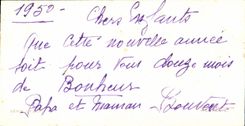 1950-
Chers Enfants
Que cette nouvelle année
soit pour vous douze mois
de Bonheur
Papa et Maman